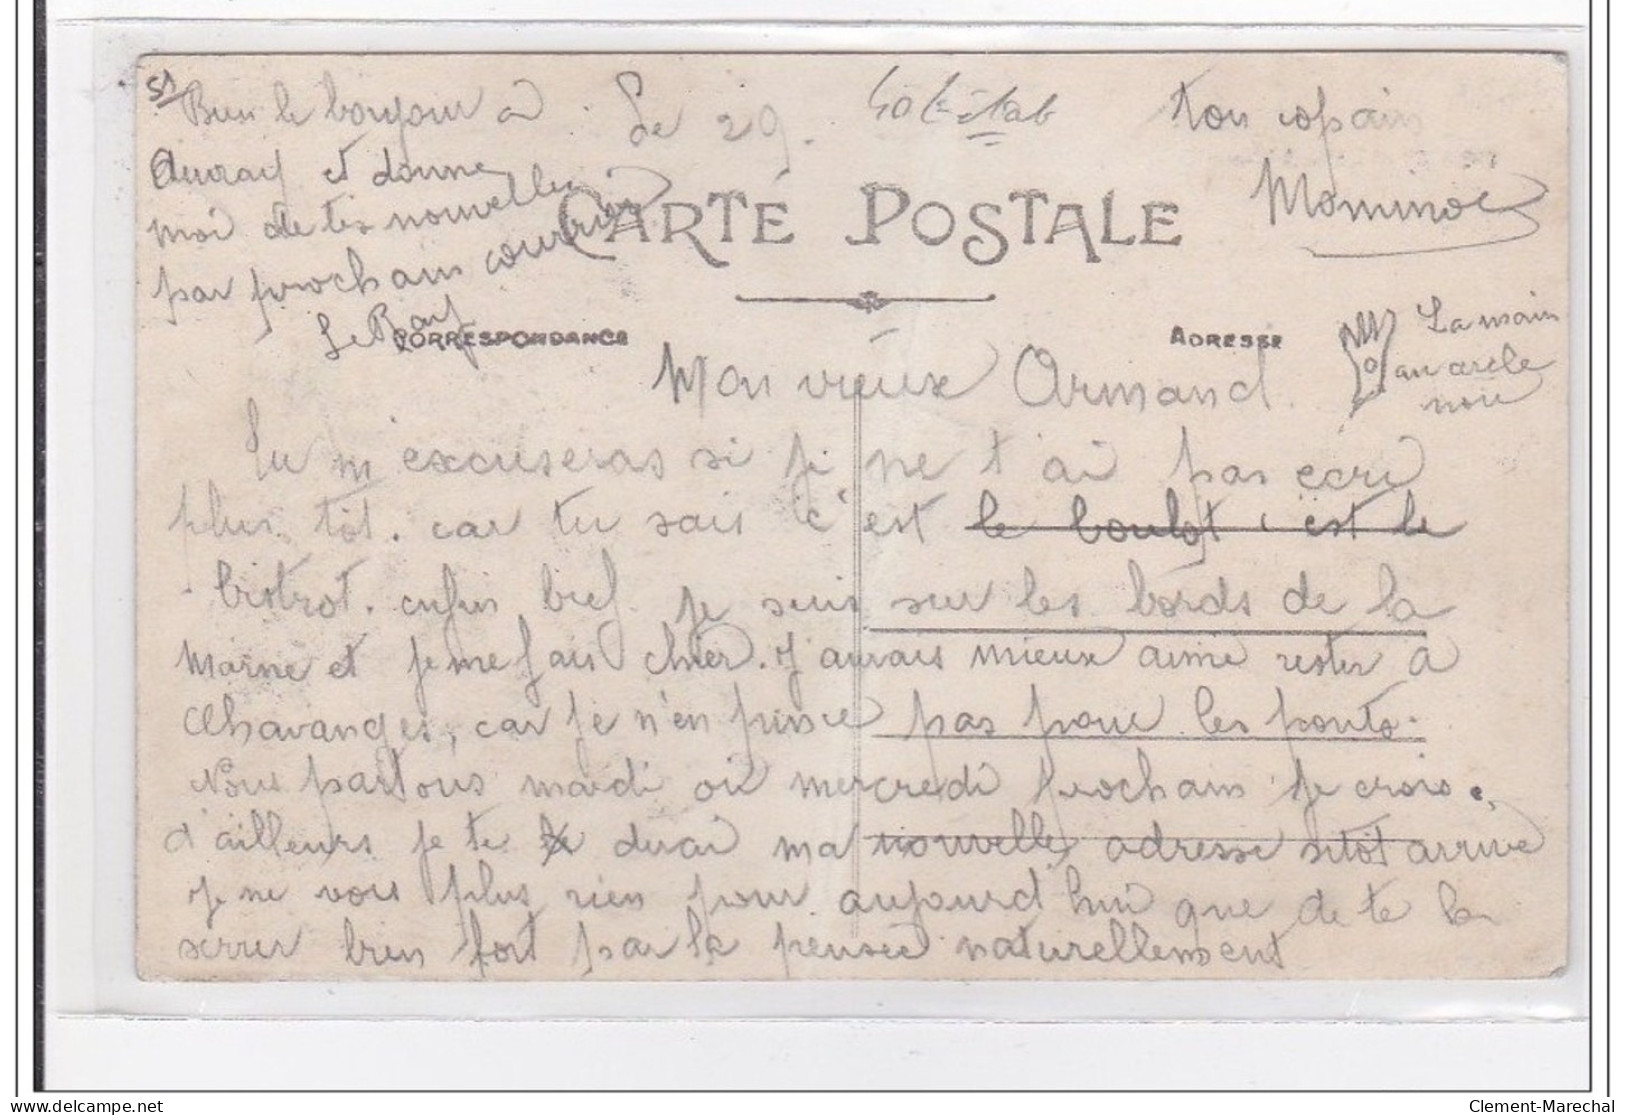 51
Bien le bonjour à
Auray et donne
moi de tes nouvelles
par prochain courrier
Le Bay
Le 29.
ton copain
Mominoe
CARTE POSTALE
CORRESPONDANCE
ADRESSE
La main
au arcle
noir
Mon vieux Armand
Tu m'excuseras si je ne t'ai pas écri
plus tôt. car tu sais c'est le boulot c'est le
bistrot. enfin bief je suis sur les bords de la
Marne et je me fais chier. J'aurais mieux aimé rester à
Chavanges, car je n'en pince pas pour les ponts.
Nous partons mardi ou mercredi prochain je crois.
d'ailleurs je te dirai ma nouvelle adresse sitôt arrivé
je ne vois plus rien pour aujourd'hui que de te la
serrer bien fort par la pensée naturellement
Clement-Marechal